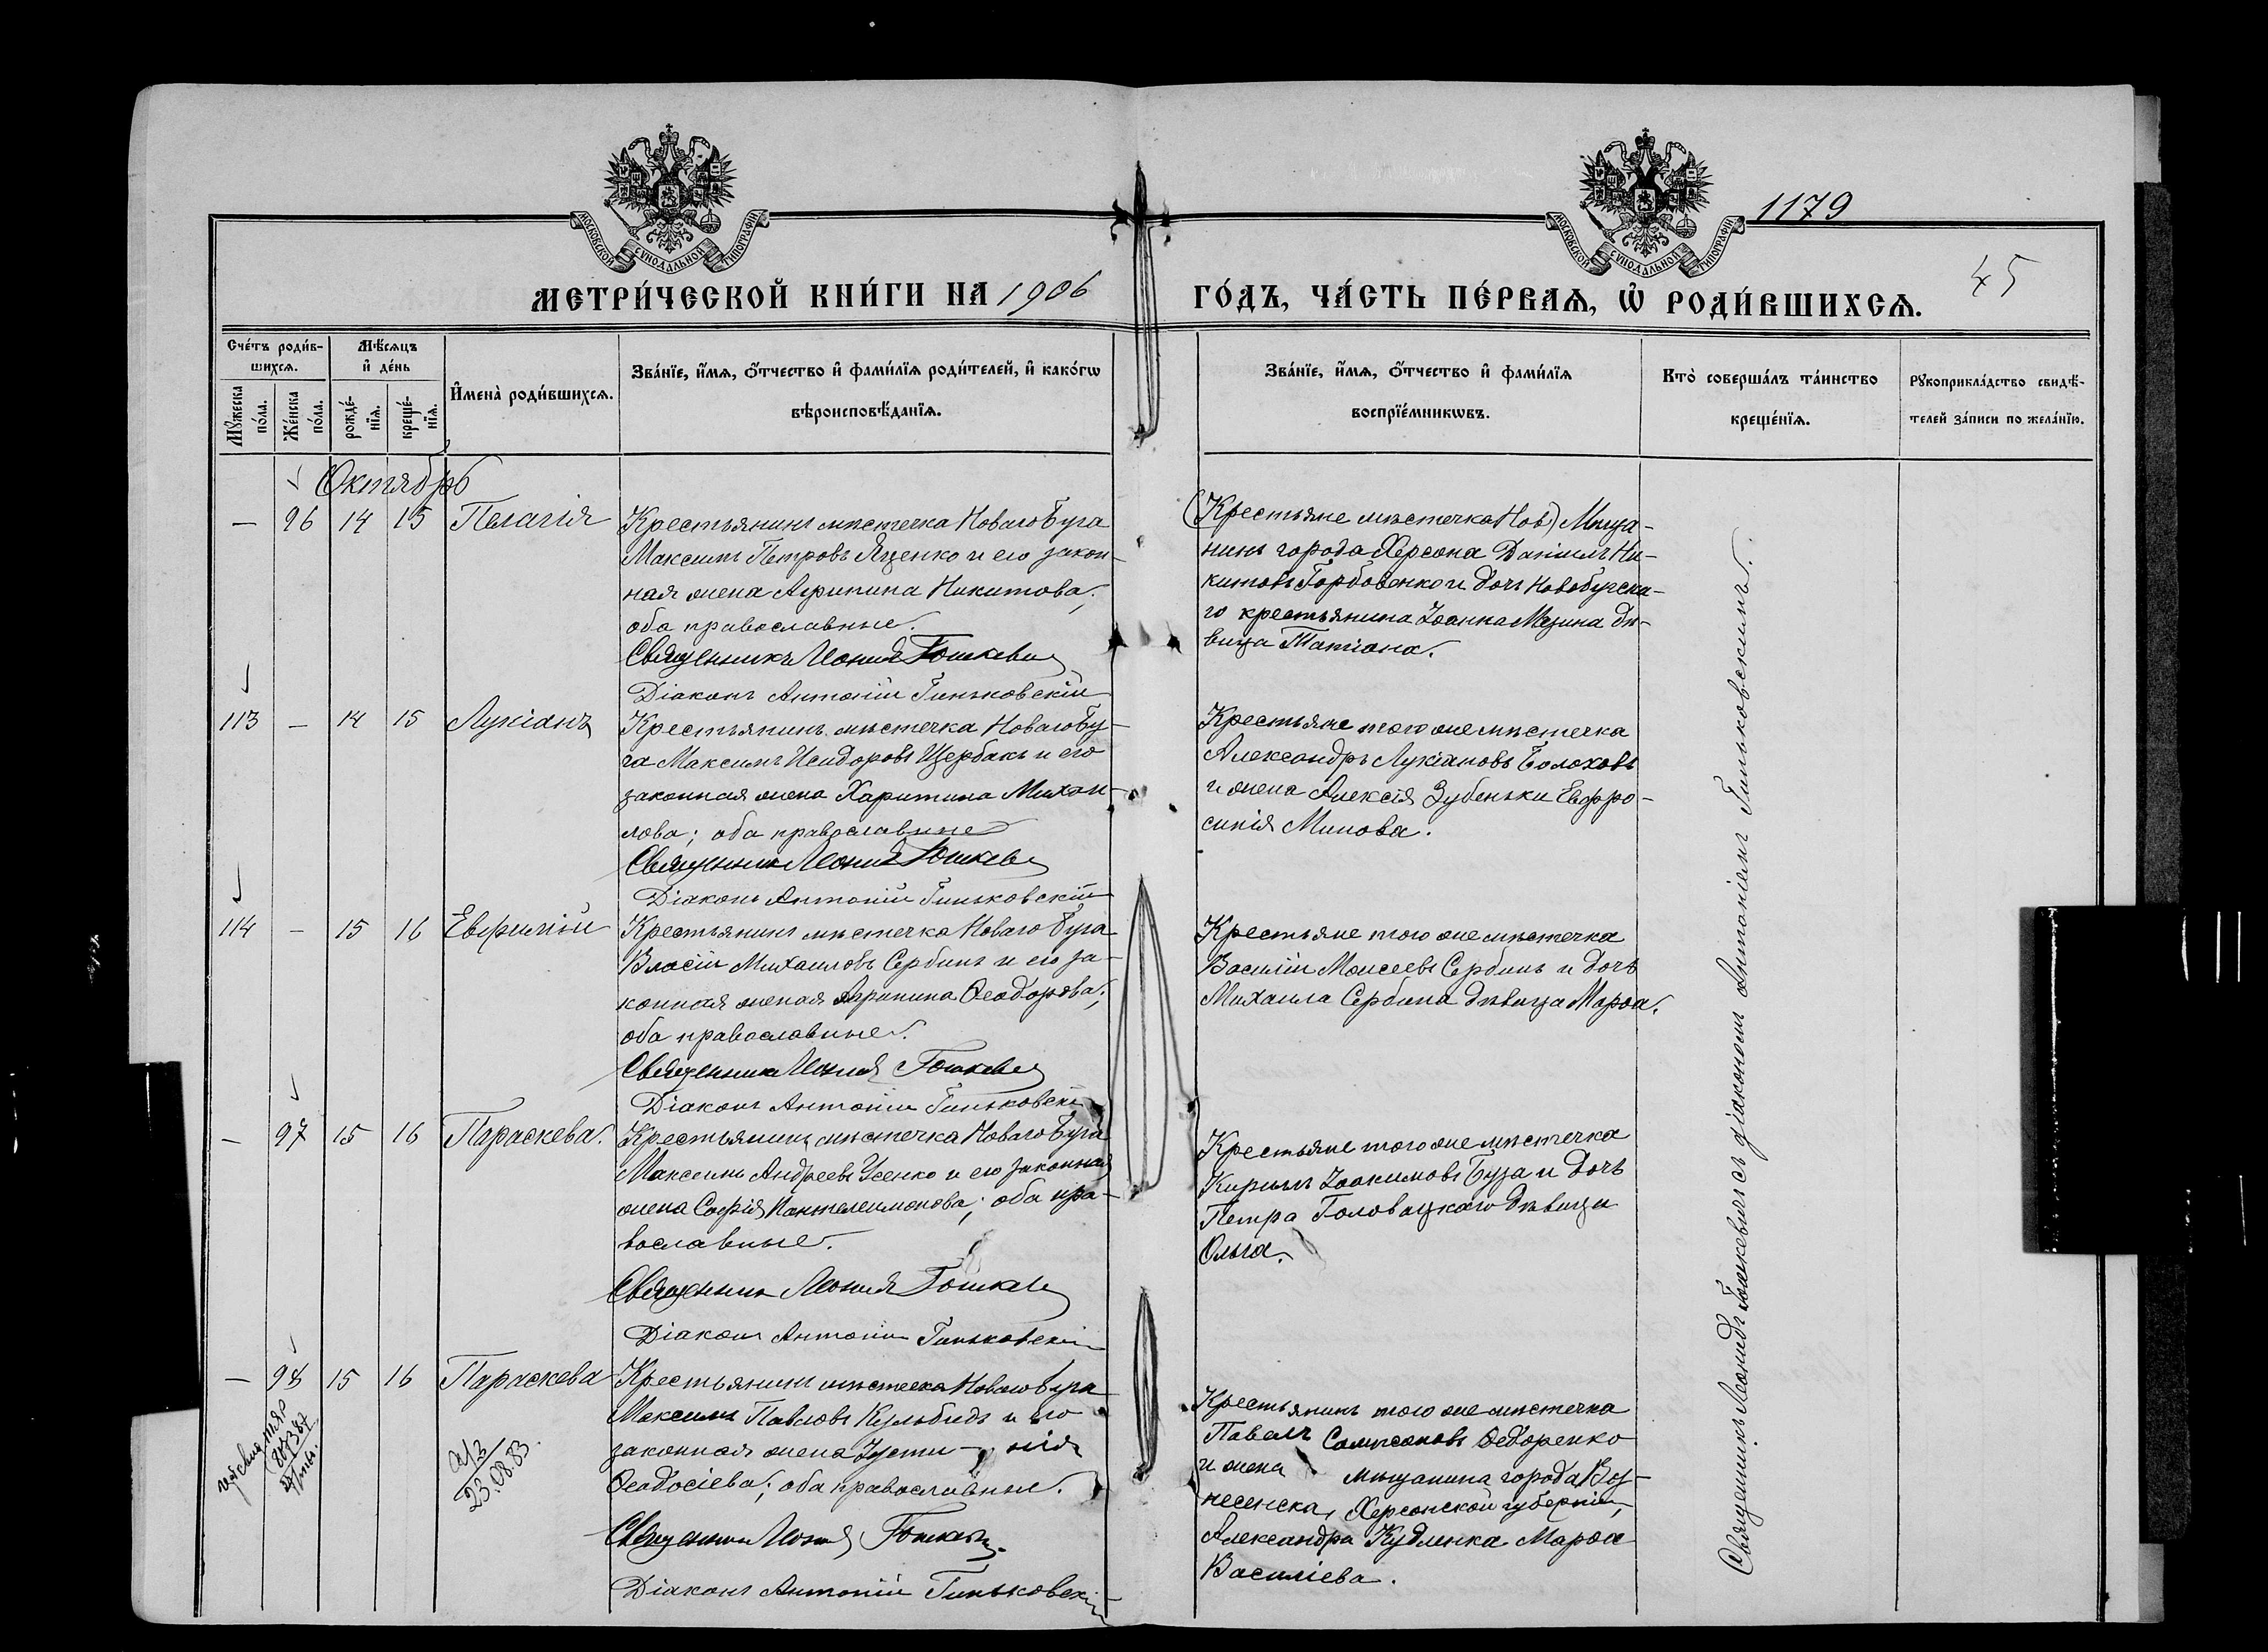 МОСКОВСКОЙ СѴНОДАЛЬНОЙ ТИПОГРАФІИ
МОСКОВСКОЙ СѴНОДАЛЬНОЙ ТИПОГРАФІИ
1179
45
МЕТРИ́ЧЕСКОЙ КНИ́ГИ НА 1906 ГО́ДЪ, ЧА́СТЬ ПЕ́РВАѦ, Ѡ҆ РОДИ́ВШИХСѦ.
Сче́тъ роди́в-
шихсѧ.
Мѣ́сѧцъ
и҆ де́нь
Мꙋ́жеска
по́ла.
Же́нска
по́ла.
рожде́-
нїѧ.
креще́-
нїѧ.
И҆мена̀ роди́вшихсѧ.
Зва́нїе, и҆́мѧ, ѻ҆́тчество и҆ фами́лїѧ роди́телей, и҆ како́гѡ
вѣроисповѣ́данїѧ.
Зва́нїе, и҆́мѧ, ѻ҆́тчество и҆ фами́лїѧ
воспрїе́мникѡвъ.
Кто̀ соверша́лъ та́инство
креще́нїѧ.
Рꙋкоприкла́дство свидѣ́-
телей за́писи по жела́нїю.
Октябрь
— 96 14 15 Пелагія
Крестьянинъ мѣстечка Новаго Буга
Максимъ Петровъ Яценко и его закон-
ная жена Агрипина Никитова;
оба православные.
Священникъ Леонидъ Гошкевич
Діаконъ Антоній Гиньковскій
(Крестьяне мѣстечка Нов) Мѣща-
нинъ города Херсона Даніилъ Ни-
китовъ Горбовенко и дочь Новобугска-
го крестьянина Іоанна Мезина дѣ-
вица Татіана.
113 — 14 15 Лукіанъ
Крестьянинъ мѣстечка Новаго Бу-
га Максимъ Исидоровъ Щербакъ и его
законная жена Харитина Михаи-
лова; оба православные
Священникъ Леонидъ Гошкевич
Діаконъ Антоній Гиньковскій
Крестьяне того же мѣстечка
Александръ Лукіановъ Болоховъ
и жена Алексія Зубеньки Евфро-
синія Минова.
114 — 15 16 Евфимій
Крестьянинъ мѣстечка Новаго Буга
Власій Михаиловъ Сербинъ и его за-
конная женая Агрипина Ѳеодорова;
оба православные.
Священникъ Леонидъ Гошкевич
Діаконъ Антоній Гиньковскій
Крестьяне того же мѣстечка
Василій Моисеевъ Сербинъ и дочь
Михаила Сербина дѣвица Марѳа.
— 97 15 16 Параскева.
Крестьянинъ мѣстечка Новаго Буга
Максимъ Андреевъ Усенко и его законная
жена Софія Пантелеимонова; оба пра-
вославные.
Священникъ Леонидъ Гошкевич
Діаконъ Антоній Гиньковскій
Крестьяне того же мѣстечка
Кириллъ Іоакимовъ Буза и дочь
Петра Головацкаго дѣвица
Ольга.
— 98 15 16 Параскева
Крестьянинъ мѣстечка Новаго Буга
Максимъ Павловъ Кульбидъ и его
законная жена Іусти-нія
Ѳеодосіева; оба православные.
Священникъ Леонидъ Гошкевич
Діаконъ Антоній Гиньковскій
Крестьянинъ того же мѣстечка
Павелъ Сампсоновъ Ѳедоренко
и жена мѣщанина города Воз-
несенска, Херсонской губерніи,
Александра Кудленка Марѳа
Василіева.
23.08.83.
Священникъ Леонидъ Гошкевичъ съ діакономъ Антоніемъ Гиньковскимъ.